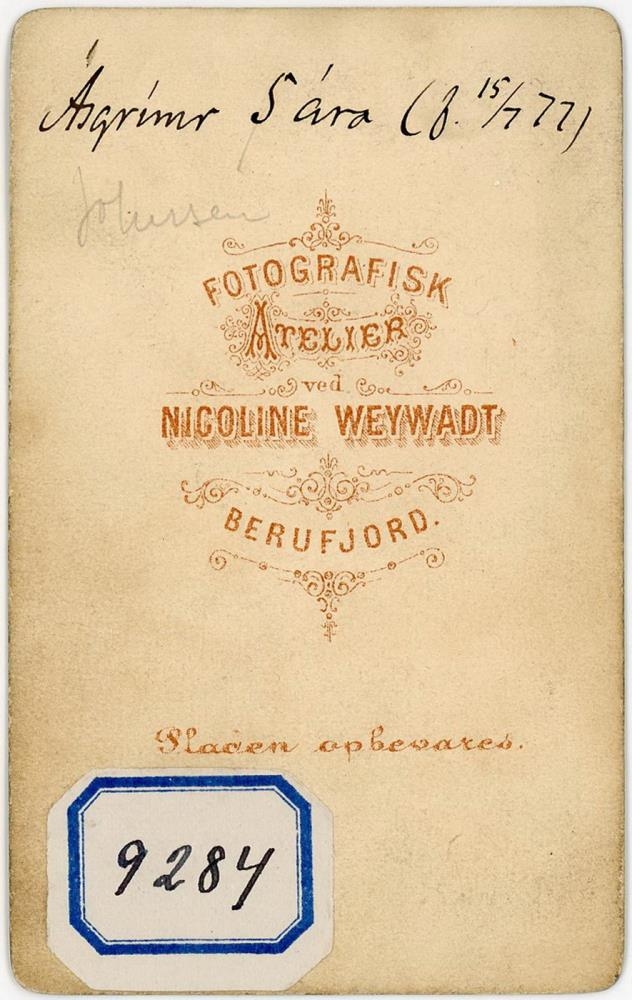 Ásgrímur 5 ára (f. 15/7 77)
Johnsen
FOTOGRAFISK
ATELIER
ved
NICOLINE WEYWADT
BERUFJORD.
Pladen opbevares.
9284